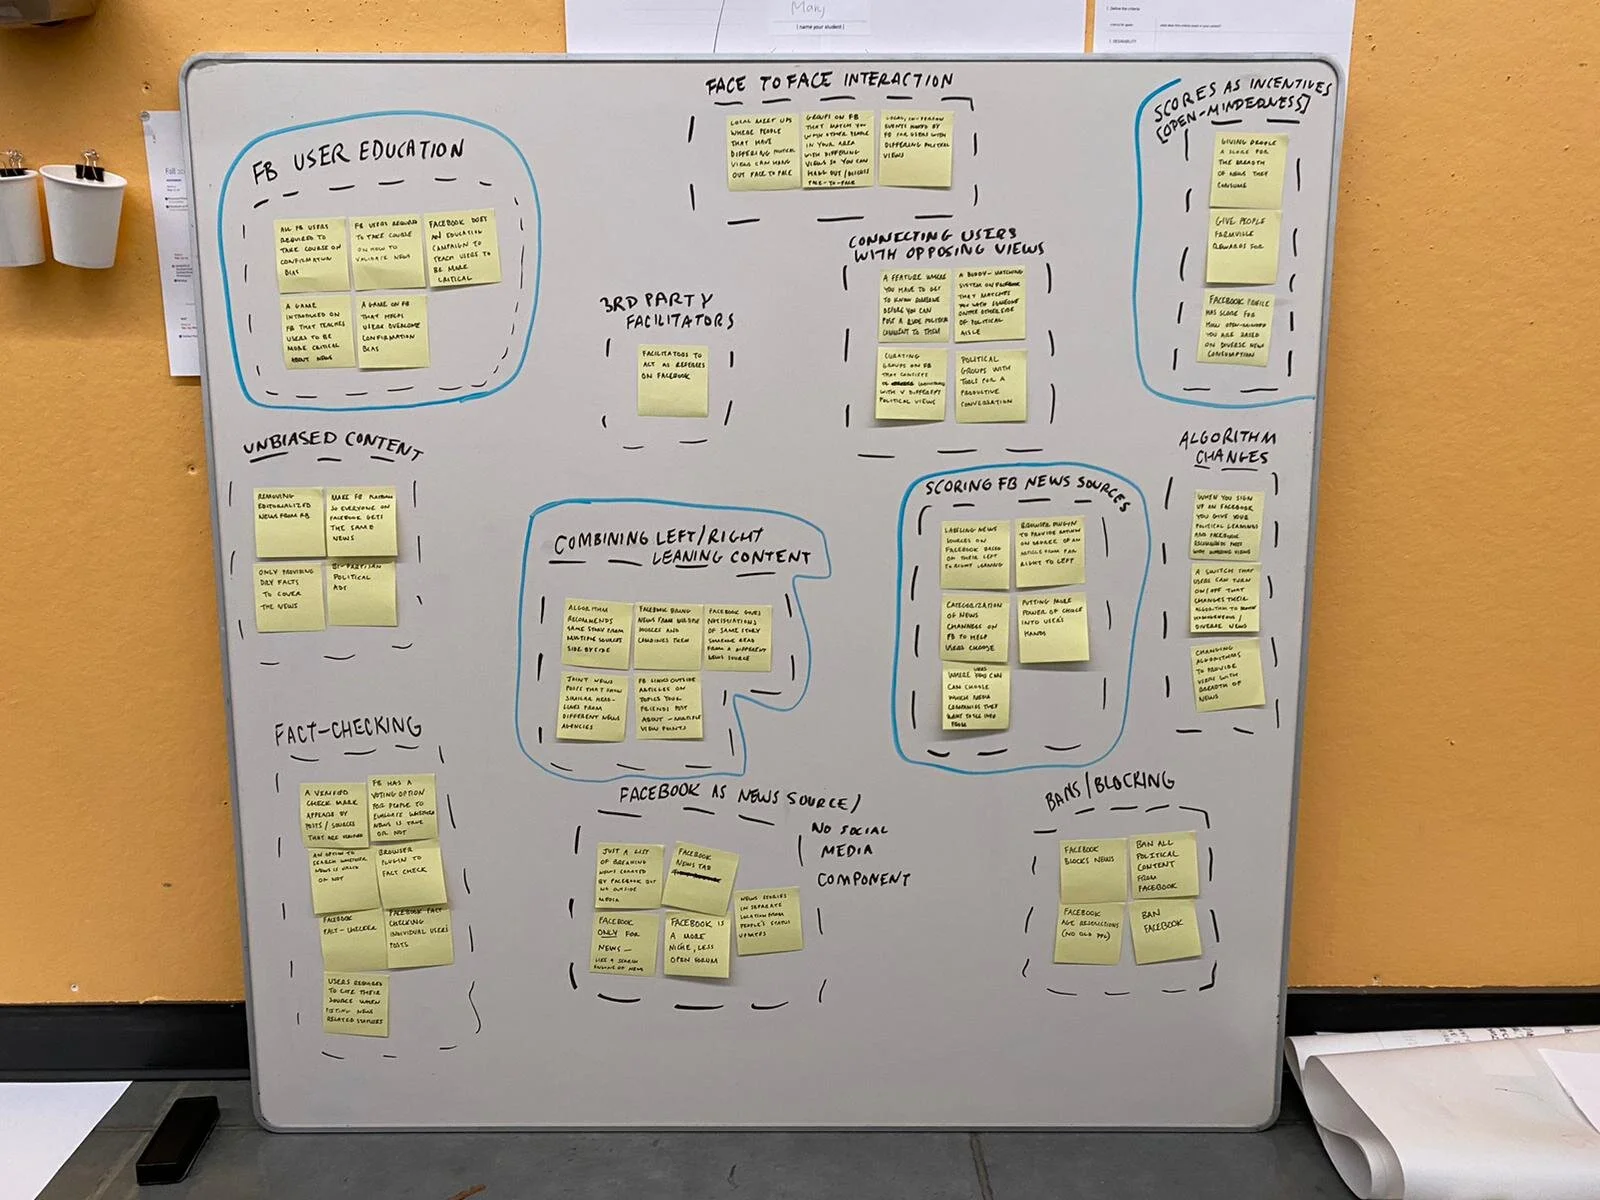 Mary
[ name your student ]
FACE TO FACE INTERACTION
LOCAL MEET UPS
WHERE PEOPLE
THAT HAVE
DIFFERING POLITICAL
VIEWS CAN HANG
OUT FACE TO FACE
GROUPS ON FB
THAT MATCH YOU
WITH OTHER PEOPLE
IN YOUR AREA
WITH DIFFERING
VIEWS SO YOU CAN
HANG OUT / DISCUSS
FACE-TO-FACE
LOCAL, IN-PERSON
EVENTS HOSTED BY
FB FOR USERS WITH
DIFFERING POLITICAL
VIEWS
SCORES AS INCENTIVES
[OPEN-MINDEDNESS]
GIVING PEOPLE
A SCORE FOR
THE BREADTH
OF NEWS THEY
CONSUME
GIVE PEOPLE
FARMVILLE
REWARDS FOR
FACEBOOK PROFILE
HAS SCORE FOR
HOW OPEN-MINDED
YOU ARE BASED
ON DIVERSE NEWS
CONSUMPTION
FB USER EDUCATION
ALL FB USERS
REQUIRED TO
TAKE COURSE ON
CONFIRMATION
BIAS
FB USERS REQUIRED
TO TAKE COURSE
ON HOW TO
VALIDATE NEWS
FACEBOOK DOES
AN EDUCATION
CAMPAIGN TO
TEACH USERS TO
BE MORE
CRITICAL
A GAME
INTRODUCED ON
FB THAT TEACHES
USERS TO BE
MORE CRITICAL
ABOUT NEWS
A GAME ON FB
THAT HELPS
USERS OVERCOME
CONFIRMATION
BIAS
3RD PARTY
FACILITATORS
FACILITATORS TO
ACT AS REFEREES
ON FACEBOOK
CONNECTING USERS
WITH OPPOSING VIEWS
A FEATURE WHERE
YOU HAVE TO GET
TO KNOW SOMEONE
BEFORE YOU CAN
POST A RUDE POLITICAL
COMMENT TO THEM
A BUDDY-MATCHING
SYSTEM ON FACEBOOK
THAT MATCHES
YOU WITH SOMEONE
ON THE OTHER SIDE
OF POLITICAL
AISLE
CURATING
GROUPS ON FB
THAT CONSISTS
OF
WITH V DIFFERENT
POLITICAL VIEWS
POLITICAL
GROUPS WITH
TOOLS FOR A
PRODUCTIVE
CONVERSATION
UNBIASED CONTENT
REMOVING
EDITORIALIZED
NEWS FROM FB
MAKE FB PLATFORM
SO EVERYONE ON
FACEBOOK GETS
THE SAME
NEWS
ONLY PROVIDING
DRY FACTS
TO COVER
THE NEWS
BI-PARTISAN
POLITICAL
ADS
COMBINING LEFT/RIGHT
LEANING CONTENT
ALGORITHM
RECOMMENDS
SAME STORY FROM
MULTIPLE SOURCES
SIDE BY SIDE
FACEBOOK BRING
NEWS FROM MULTIPLE
SOURCES AND
COMBINES THEM
FACEBOOK GIVES
NOTIFICATIONS
OF SAME STORY
SOMEONE READ
FROM A DIFFERENT
NEWS SOURCE
JOINT NEWS
POSTS THAT SHOW
SIMILAR HEAD-
LINES FROM
DIFFERENT NEWS
AGENCIES
FB LINKS OUTSIDE
ARTICLES ON
TOPICS YOUR
FRIENDS POST
ABOUT - MULTIPLE
VIEW POINTS
SCORING FB NEWS SOURCES
LABELING NEWS
SOURCES ON
FACEBOOK BASED
ON THEIR LEFT
TO RIGHT LEANING
BROWSER PLUGIN
TO PROVIDE RATING
ON DEGREE OF AN
ARTICLE FROM FAR
RIGHT TO LEFT
CATEGORIZATION
OF NEWS
CHANNELS ON
FB TO HELP
USERS CHOOSE
PUTTING MORE
POWER OF CHOICE
INTO USER'S
HANDS
USERS
WHERE YOU CAN
CAN CHOOSE
WHICH MEDIA
COMPANIES THEY
WANT TO SEE INFO
FROM
ALGORITHM
CHANGES
WHEN YOU SIGN
UP ON FACEBOOK
YOU GIVE YOUR
POLITICAL LEANINGS
AND FACEBOOK
RECOMMENDS POSTS
WITH
A SWITCH THAT
USERS CAN TURN
ON/OFF THAT
CHANGES THEIR
ALGORITHM TO
HOMOGENEOUS /
DIVERSE NEWS
CHANGING
ALGORITHMS
TO PROVIDE
USERS WITH
BREADTH OF
NEWS
FACT-CHECKING
A VERIFIED
CHECK MARK
APPEARS BY
POSTS / SOURCES
THAT ARE
FB HAS A
VOTING OPTION
FOR PEOPLE TO
EVALUATE WHETHER
NEWS IS TRUE
OR NOT
AN OPTION TO
SEARCH WHETHER
NEWS IS VALID
OR NOT
BROWSER
PLUGIN TO
FACT CHECK
FACEBOOK
FACT-CHECKER
FACEBOOK FACT
CHECKING
INDIVIDUAL USER'S
POSTS
USERS REQUIRED
TO CITE THEIR
SOURCE WHEN
POSTING NEWS
RELATED STATUSES
FACEBOOK AS NEWS SOURCE/
NO SOCIAL
MEDIA
COMPONENT
JUST A LIST
OF BREAKING
NEWS CURATED
BY FACEBOOK BUT
NO OUTSIDE
MEDIA
FACEBOOK
NEWS TAB
NEWS STORIES
IN SEPARATE
LOCATION FROM
PEOPLE'S STATUS
UPDATES
FACEBOOK
ONLY FOR
NEWS —
LIKE A SEARCH
ENGINE OF NEWS
FACEBOOK IS
A MORE
NICHE, LESS
OPEN FORUM
BANS/BLOCKING
FACEBOOK
BLOCKS NEWS
BAN ALL
POLITICAL
CONTENT
FROM
FACEBOOK
FACEBOOK
AGE RESTRICTIONS
(NO OLD PPL)
BAN
FACEBOOK